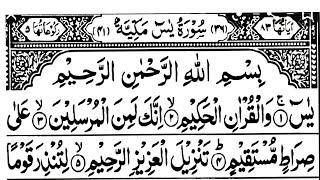 اٰيَاتُهَا ٨٣ (٣٦) سُوْرَةُ يٰسٓ مَكِّيَّةٌ (٤١) رُكُوْعَاتُهَا ٥
بِسْمِ اللّٰهِ الرَّحْمٰنِ الرَّحِيْمِ
يٰسٓ ۚ﴿۱﴾ وَالْقُرْاٰنِ الْحَكِيْمِ ﴿۲﴾ اِنَّكَ لَمِنَ الْمُرْسَلِيْنَ ﴿۳﴾ عَلٰى
صِرَاطٍ مُّسْتَقِيْمٍ ﴿۴﴾ تَنْزِيْلَ الْعَزِيْزِ الرَّحِيْمِ ﴿۵﴾ لِتُنْذِرَ قَوْمًا